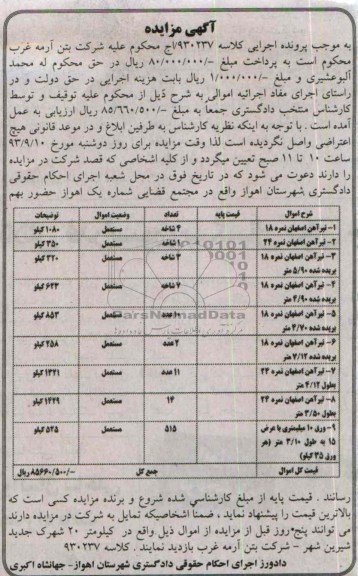 آگهی مزایده
به موجب پرونده اجرایی کلاسه ۹۳۰۲۳۷/اج محکوم علیه شرکت بتن آرمه غرب
محکوم است به پرداخت مبلغ -/۸۰/۰۰۰/۰۰۰ ریال در حق محکوم له محمد
آلبوعشیری و مبلغ -/۱/۰۰۰/۰۰۰ ریال بابت هزینه اجرایی در حق دولت و در
راستای اجرای مفاد اجرائیه اموالی به شرح ذیل از محکوم علیه توقیف و توسط
کارشناس منتخب دادگستری جمعاً به مبلغ -/۸۵/۶۶۰/۵۰۰ ریال ارزیابی به عمل
آمده است . با توجه به اینکه نظریه کارشناس به طرفین ابلاغ و در موعد قانونی هیچ
اعتراضی واصل نگردیده است لذا وقت مزایده برای روز دوشنبه مورخ ۹۳/۹/۱۰
ساعت ۱۰ تا ۱۱ صبح تعیین میگردد و از کلیه اشخاصی که قصد شرکت در مزایده
را دارند دعوت می شود که در تاریخ فوق در محل شعبه اجرای احکام حقوقی
دادگستری شهرستان اهواز واقع در مجتمع قضایی شماره یک اهواز حضور بهم
شرح اموال قیمت پایه تعداد وضعیت اموال توضیحات
۱- تیرآهن اصفهان نمره ۱۸ ۴ شاخه مستعمل ۱۰۸۰ کیلو
۲- تیرآهن اصفهان نمره ۲۴ ۱ شاخه مستعمل ۳۵۰ کیلو
۳- تیرآهن اصفهان نمره ۱۸ بریده شده ۵/۹۰ متر ۳ شاخه مستعمل ۳۲۰ کیلو
۴- تیرآهن اصفهان نمره ۱۸ بریده شده ۴/۹۰ متر ۷ شاخه مستعمل ۶۴۳ کیلو
۵- تیرآهن اصفهان نمره ۱۸ بریده شده ۴/۷۰ متر ۱۰ عدد مستعمل ۸۵۳ کیلو
۶- تیرآهن اصفهان نمره ۱۸ بریده شده ۷/۱۲ متر ۲ عدد مستعمل ۲۵۸ کیلو
۷- تیرآهن اصفهان نمره ۲۴ بطول ۴/۱۲ متر ۱۱ عدد مستعمل ۱۳۲۱ کیلو
۸- تیرآهن اصفهان نمره ۲۴ بطول ۳/۵۰ متر ۱۴ مستعمل ۱۴۲۹ کیلو
۹- ورق ۱۰ میلیمتری با عرض ۱۵ به طول ۳/۱۰ متر (هر ورق ۳۵ کیلو) ۵۱۵ مستعمل ۵۲۵ کیلو
قیمت کل اموال جمع کل -/۸۵۶۶۰/۵۰۰ ریال
رسانند . قیمت پایه از مبلغ کارشناسی شده شروع و برنده مزایده کسی است که
بالاترین قیمت را پیشنهاد نماید ، ضمناً اشخاصیکه تمایل به شرکت در مزایده دارند
می توانند پنج روز قبل از مزایده از اموال ذیل واقع در کیلومتر ۲۰ شهرک جدید
شیرین شهر – شرکت بتن آرمه غرب بازدید نمایند . کلاسه ۹۳۰۲۳۷
دادورز اجرای احکام حقوقی دادگستری شهرستان اهواز- جهانشاه اکبری